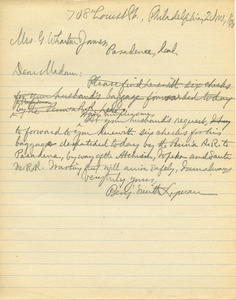 708 Locust St., Philadelphia,
Mrs G. Wharton James,
Pasadena, Cal.
Dear Madam:
Please find herewith six checks
for your husband's baggage forwarded to day
by the
At your husband's request,
to forward to you herewith six checks for his
baggage despatched to day by the Penna R.R. to
Pasadena, by way of the Atchison, Topeka and Santa
Fe R.R. Trusting that will arrive safely, I am always
very truly yours,
Benj. Smith Lyman